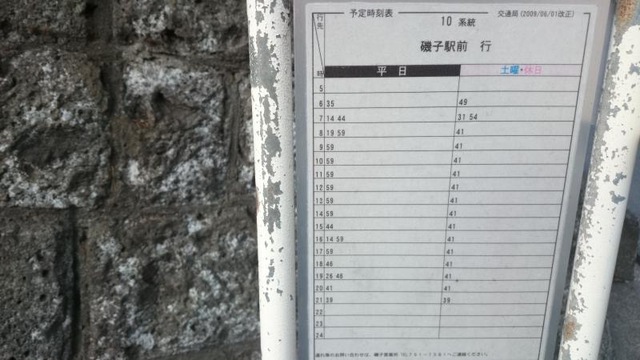 予定時刻表 交通局(2009/06/01改正)
行先 10 系統
磯子駅前 行
時 平日 土曜・休日
5
6 35 49
7 14 44 31 54
8 19 59 41
9 59 41
10 59 41
11 59 41
12 59 41
13 59 41
14 59 41
15 44 41
16 14 59 41
17 59 41
18 46 41
19 26 46 41
20 41 41
21 39 39
22
23
24